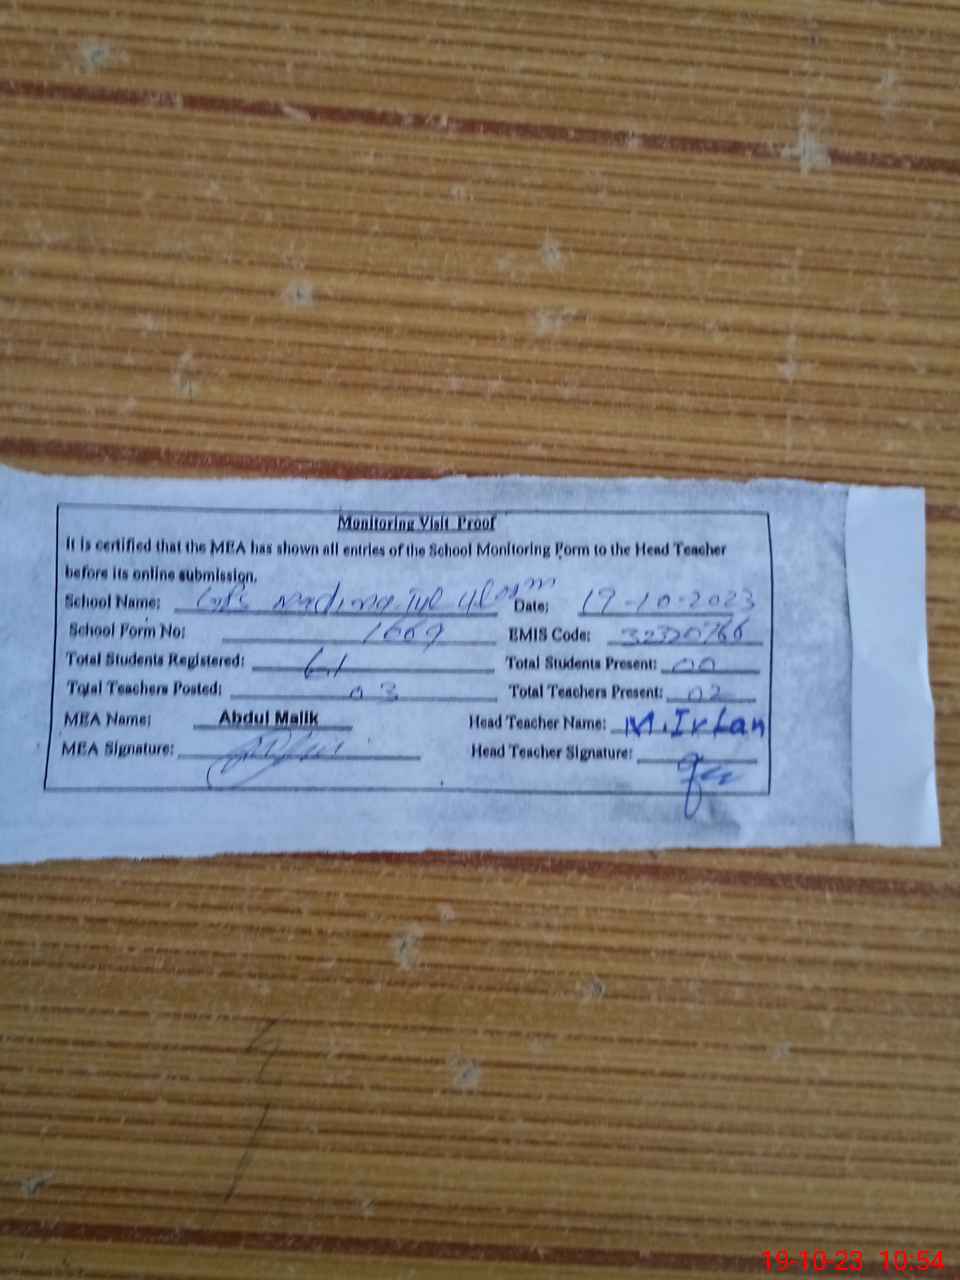 Monitoring Visit Proof
It is certified that the MEA has shown all entries of the School Monitoring Form to the Head Teacher
before its online submission.
School Name: GPS madina tul uloom Date: 19-10-2023
School Form No: 1669 EMIS Code:
Total Students Registered: 61 Total Students Present: 00
Total Teachers Posted: 03 Total Teachers Present: 02
MEA Name: Abdul Malik Head Teacher Name: M.Irfan
MEA Signature: Head Teacher Signature:
19-10-23 10:54